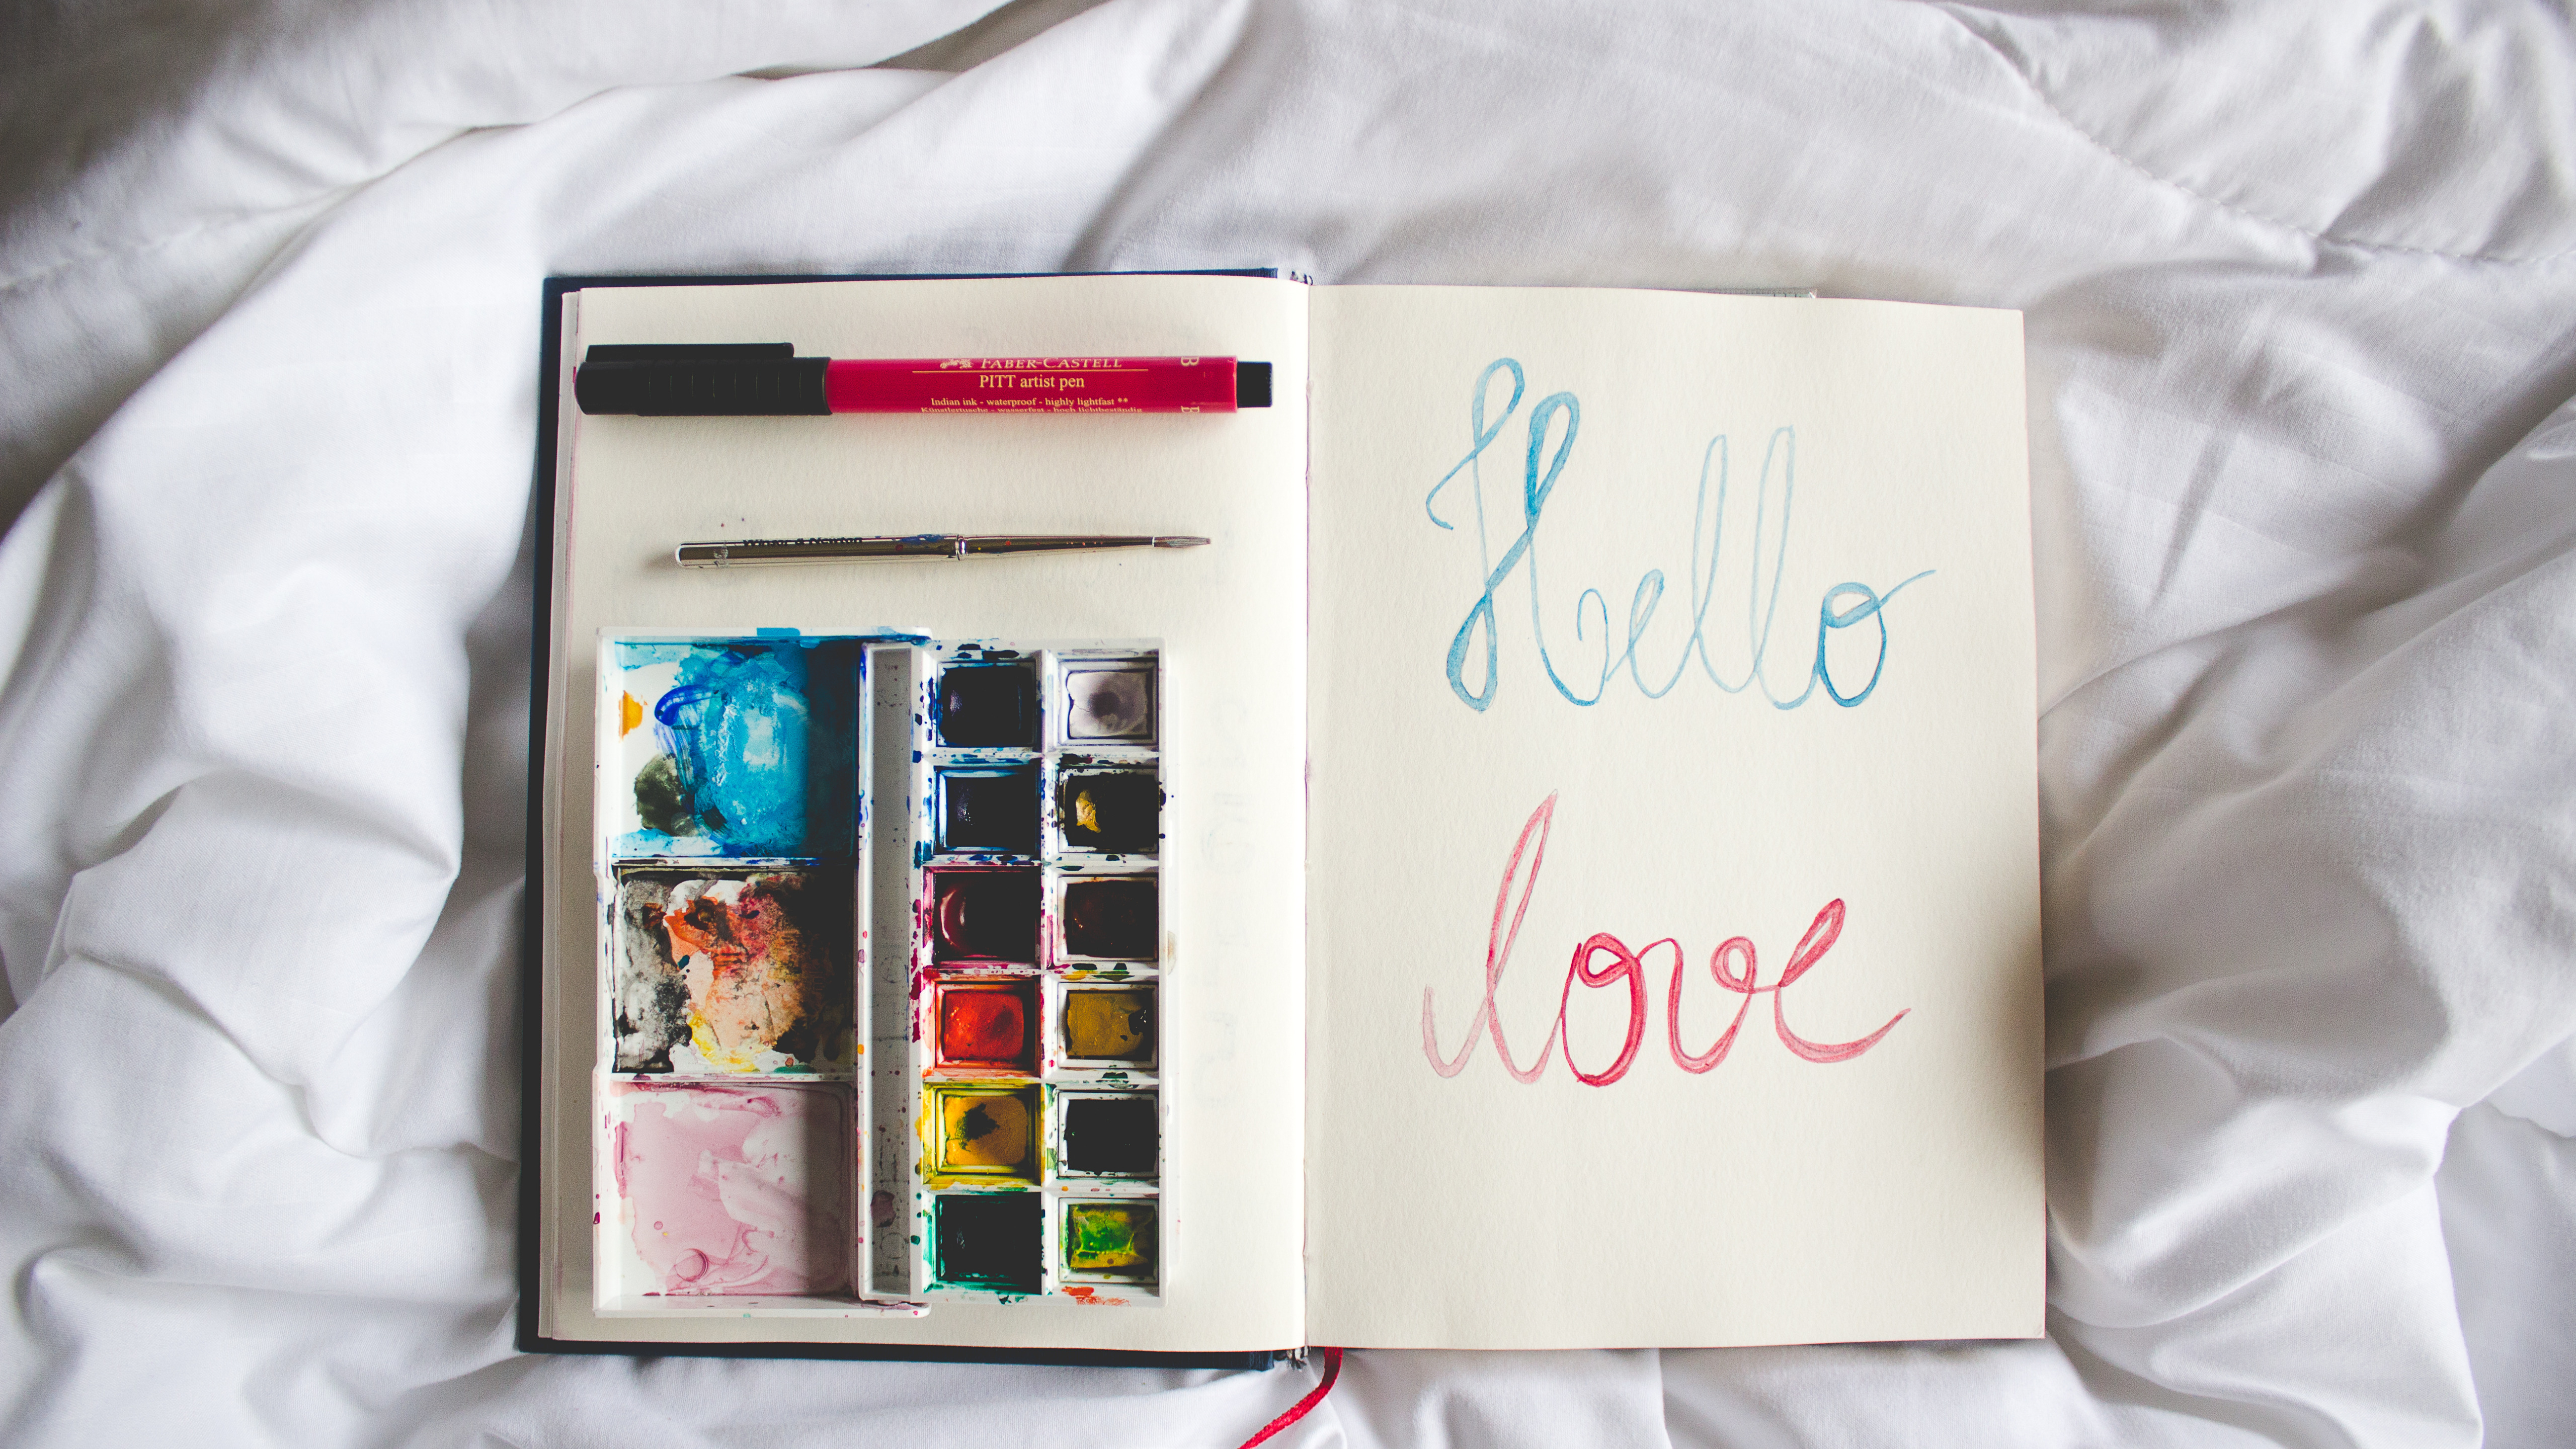 FABER-CASTELL
PITT artist pen
Indian ink - waterproof - highly lightfast **
Künstlertusche - wasserfest - hoch lichtbeständig
B
Winsor & Newton
Hello
love